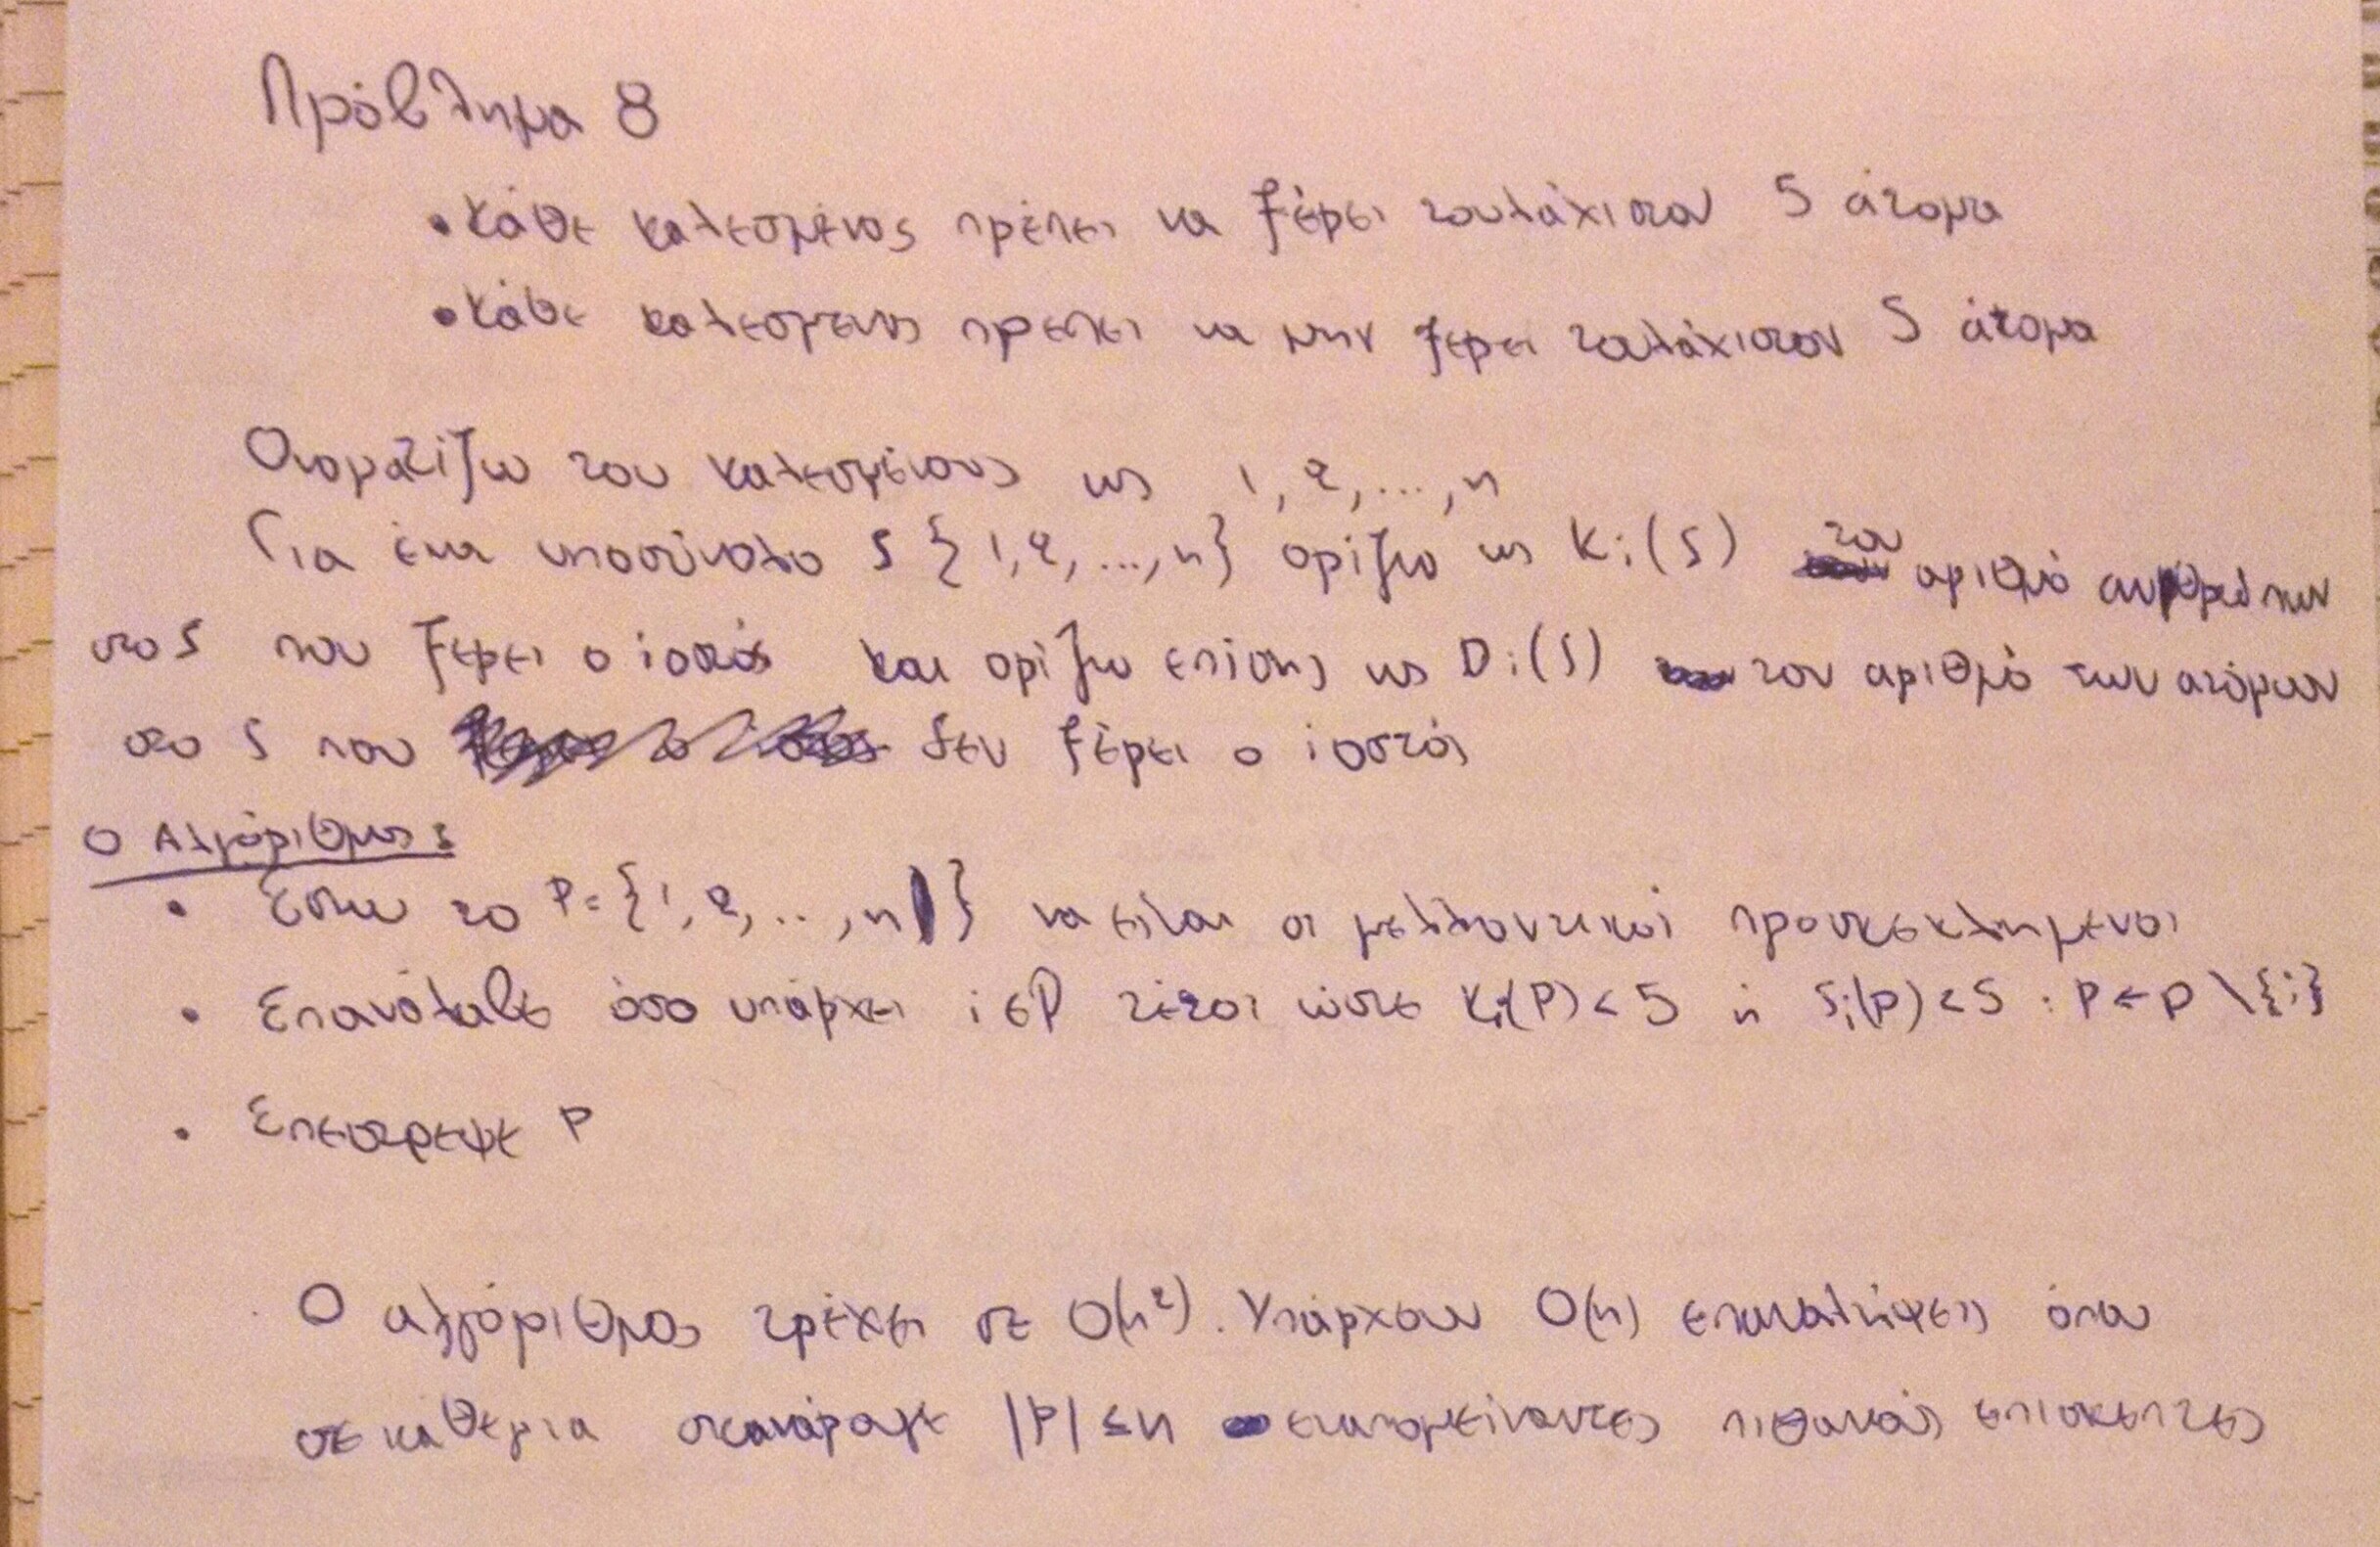 Πρόβλημα 8
• Κάθε καλεσμένος πρέπει να ξέρει τουλάχιστον 5 άτομα
• Κάθε καλεσμενος πρεπει να μην ξερει τουλάχιστον 5 άτομα
Ονοματίζω του καλεσμένους ως 1, 2, ..., n
Για ένα υποσύνολο S {1, 2, ..., n} ορίζω ως Ki(S) τον αριθμό ανθρώπων
στο S που ξερει ο ιοστός και ορίζω επίσης ως Di(S) τον αριθμό των ατόμων
στο S που δεν ξέρει ο ιοστός
Ο Αλγόριθμος:
• Εστω το P = {1, 2, .., n} να είναι οι μελλοντικοί προσκεκλημενοι
• Επανάλαβε όσο υπάρχει i ∈ P τέτοι ώστε Ki(P) < 5 ή Si(P) < 5 : P ← P \ {i}
• Επεστρεψε P
Ο αλγόριθμος τρέχει σε O(n²). Υπάρχουν O(n) επαναλήψεις όπου
σε καθεμια σκανάραμε |P| ≤ n εναπομείναντες πιθανούς επισκεπτες